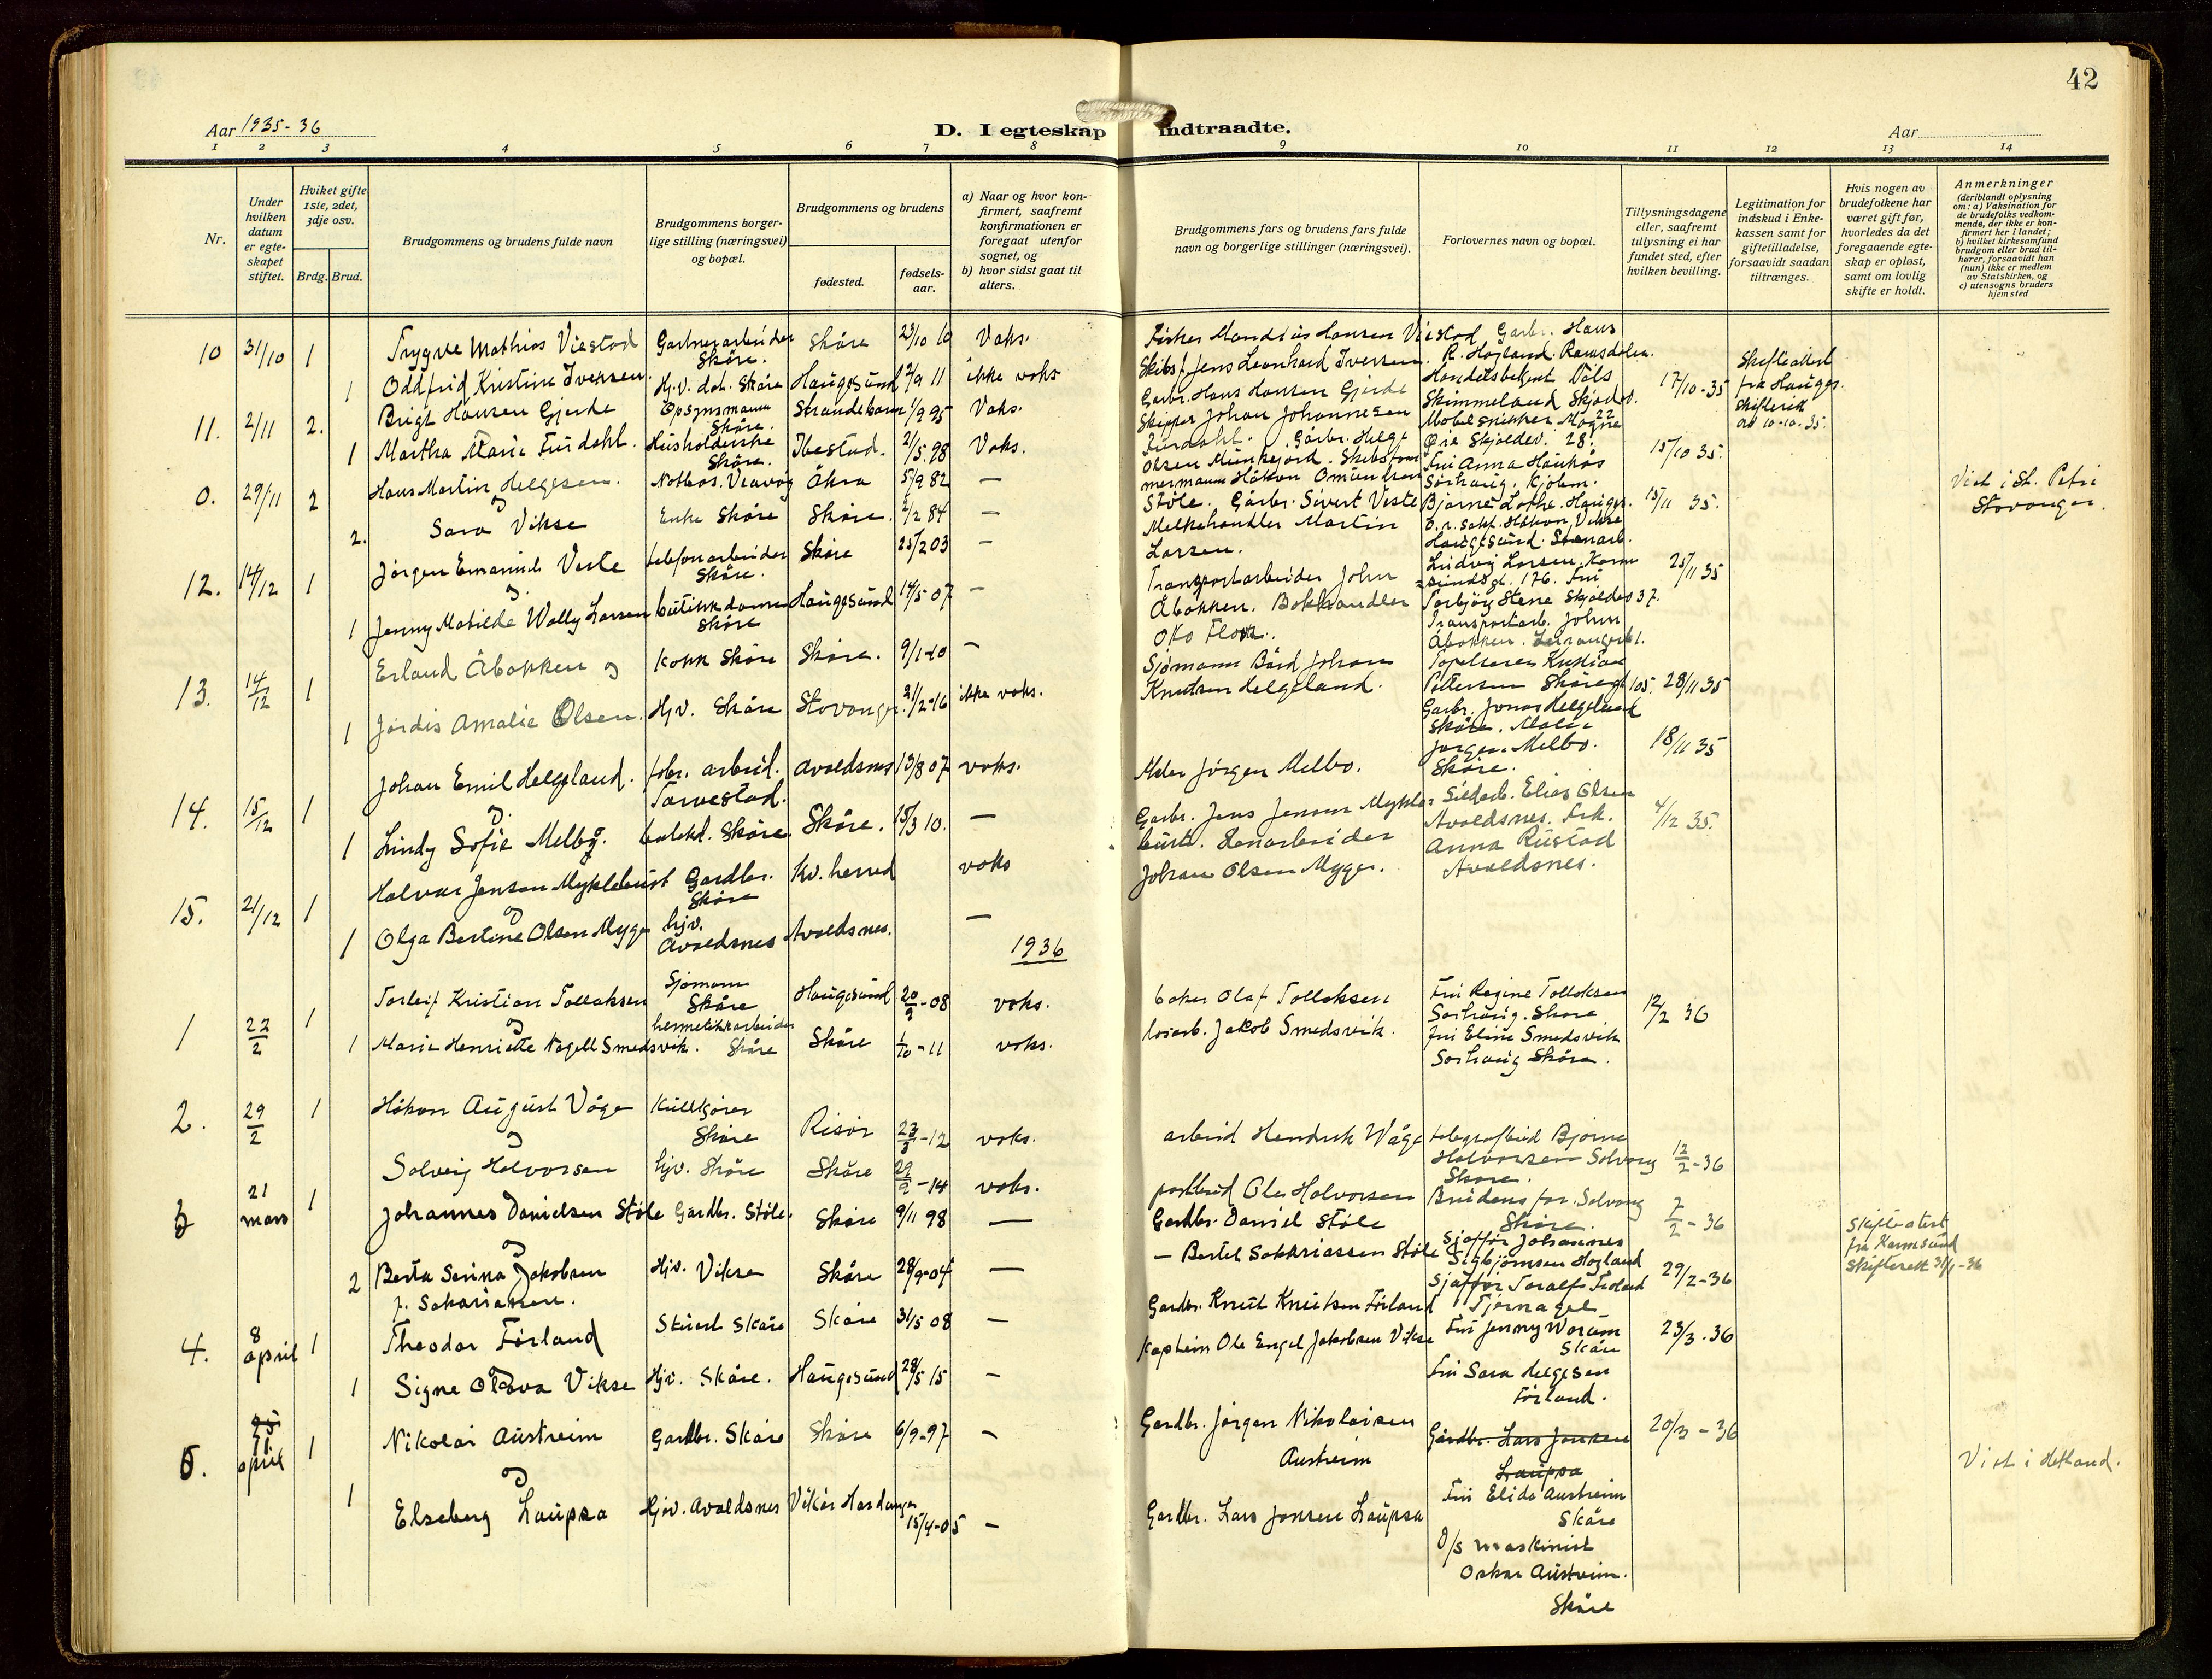 42
Aar 1935-36
D. I egteskap indtraadte.
Aar
1 2 3 4 5 6 7 8 9 10 11 12 13 14
Nr.
Under hvilken datum er egte-skapet stiftet.
Hvilket gifte 1ste, 2det, 3dje osv.
Brdg. Brud.
Brudgommens og brudens fulde navn
Brudgommens borger-lige stilling (næringsvei) og bopæl.
Brudgommens og brudens
fødested.
fødsels-aar.
a) Naar og hvor kon-firmert, saafremt konfirmationen er foregaat utenfor sognet, og
b) hvor sidst gaat til alters.
Brudgommens fars og brudens fars fulde navn og borgerlige stillinger (næringsvei).
Forlovernes navn og bopæl.
Tillysningsdagene eller, saafremt tillysning ei har fundet sted, efter hvilken bevilling.
Legitimation for indskud i Enke-kassen samt for giftetilladelse, forsaavidt saadan tiltrænges.
Hvis nogen av brudefolkene har været gift før, hvorledes da det foregaaende egte-skap er opløst, samt om lovlig skifte er holdt.
Anmerkninger
(deriblandt oplysning om: a) Vaksination for de brudefolks vedkom-mende, der ikke er kon-firmert her i landet; b) hvilket kirkesamfund brudgom eller brud til-hører, forsaavidt han (hun) ikke er medlem av Statskirken, og c) utensogns bruders hjemsted
10 31/10 1 Trygve Mathias Viestad Gartnerarbeider Skåre. Skåre 23/10 10 Vaks.
1 Oddfrid Kristine Iversen. Hj.v. det. Skåre Haugesund 2/9 11 ikke vaks
Fisker Mandius Hansen Viestad
Skibsf. Jens Leonhard Iversen.
Garbr. Hans
R. Hogland. Ramsdalen.
17/10-35
11. 2/11 2. Brigt Hansen Gjerde Opsynsmann Skåre. Strandebarm 1/9 95 Vaks.
1 Martha Marie Furdahl. Husholderske Skåre. Ibestad. 2/5.98 Vaks.
Garbr. Hans Hansen Gjerde
Skipper Johan Johannesen
Furdahl.
Handelsbetjent Nils
Skimmeland Skjoldv. 22
Møbelsnikker Magne
Øie Skjoldev. 28.
15/10 35.
Skifteattest
fra Hauges.
Skifterett
av 10-10-35.
0. 29/11 2 Hans Martin Helgesen. Notbas. Veavåg Åkra 5/9 82 —
og
2. Sara Vikse Enke Skåre Skåre. 2/2 84 —
Gårbr. Helge
Olsen Munkejord. Skibstøm
mermann Håkon Omundsen
Støle.
Fru Anna Haukås
Sørhaug. Kjøbm.
Bjarne Lothe. Hauges.
15/11 35.
Viet i St. Petri
Stavanger.
12. 14/12 1 Jørgen Emanuel Veste telefonarbeider Skåre. Skåre 25/2 03 —
og
1 Jenny Matilde Wally Larsen butikkdame Skåre Haugesund 14/5 07 —
Gårbr. Sivert Veste
Melkehandler Martin
Larsen.
O.r.sakf. Håkon Vikse
Haugesund. Stenarb.
Ludvig Larsen. Karm
sundsgt. 176.
25/11 35
13. 14/12 1 Erland Åbakken og kokk Skåre Skåre. 9/1-10 —
1 Jordis Amalie Olsen. Hjv. Skåre Stavanger. 21/2-16 ikke vaks.
Transportarbeider John
Åbakken. Bokhandler
Fru
Torbjørg Stene Skjoldev 37.
Transportarb. John
Åbakken.
28/11 35
14. 15/12 1 Johan Emil Helgeland. fabr. arbeid. Torvestad. Avaldsnes 13/8 07 vaks.
og
1 Lindy Sofie Melbø. Skåre. Skåre. 15/3 10. —
Sjømann Bård Johan
Knudsen Helgeland.
Maler Jørgen Melbo.
Tapetserer Kristian
Pettersen Skåregt 105.
Garbr. Jonas Helgeland
Skåre. Maler
Jørgen Melbo.
Skåre.
18/11 35
15. 21/12 1 Halvar Jensen Myklebust Gardbr. Skåre Kv. herred vaks
og
1 Olga Bertine Olsen Myge hjv. Avaldsnes Avaldsnes. —
Garbr. Jens Jensen Mykle-
bust. Stenarbeider
Johan Olsen Myge.
Sildarb. Elias Olsen
Avaldsnes. Frk.
Anna Rustad
Avaldsnes.
4/12 35.
1936
1 22/2 1 Torleif Kristian Tollaksen Sjømann Skåre Haugesund 20/9-08 vaks.
og
1 Marie Henriette Nagell Smedsvik. hermetikkarbeider Skåre Skåre 1/10-11 vaks.
baker Olaf Tollaksen
losarb. Jakob Smedsvik.
Fru Regine Tollaksen
Sørhaug. Skåre
Fru Eline Smedsvik
Sørhaug Skåre.
12/2 36
2. 29/2 1 Håkon August Våge Kullkjører Skåre Risør 23/3-12 vaks.
og
Solveig Halvorsen hjv. Skåre Skåre 29/9-14 vaks.
arbeid Hendrik Våge
postbud Ole Halvorsen
telegrafbud Bjarne
Halvorsen Solvang
Skåre.
Brudens far. Solvang
Skåre.
12/2-36
3 21 mars 1 Johannes Danielsen Støle Gardbr. Støle. Skåre 9/11 98 —
og
2 Berta Serina Jakobsen Hjv. Vikse Skåre 28/9-04 —
f. Sakariasen.
Gardbr. Daniel Støle
— Bertel Sakkriassen Støle
Sjåffør Johannes
Sigbjørnsen Hogland
Sjåffør Toralf Frøland
Tjernagel
7/2-36
29/2-36
Skifteatest
fra Karmsund
Skifterett 31/1-36
4. 8 april 1 Theodor Førland Stuert Skåre Skåre 31/5 08 —
og
1 Signe Olava Vikse Hjv. Skåre. Haugesund 28/5 15 —
Gardbr. Knut Knutsen Førland
Kaptein Ole Engel Jakobsen Vikse
Fru Jenny Worum
Skåre
Fru Sara Helgesen
Førland.
23/3.36
5. 11. april 1 Nikolai Austreim Gardbr. Skåre Skåre 6/9-97 —
og
1 Elseberg Laupsa Hjv. Avaldsnes Vikør Hardanger 15/4-05 —
Gardbr. Jørgen Nikolaisen
Austreim
Gardbr. Lars Jonsen Laupsa
Gårdbr. Lars Jonsen
Laupsa
Fru Elida Austreim
Skåre
D/s maskinist
Oskar Austreim.
Skåre
20/3-36
Viet i Hetland.